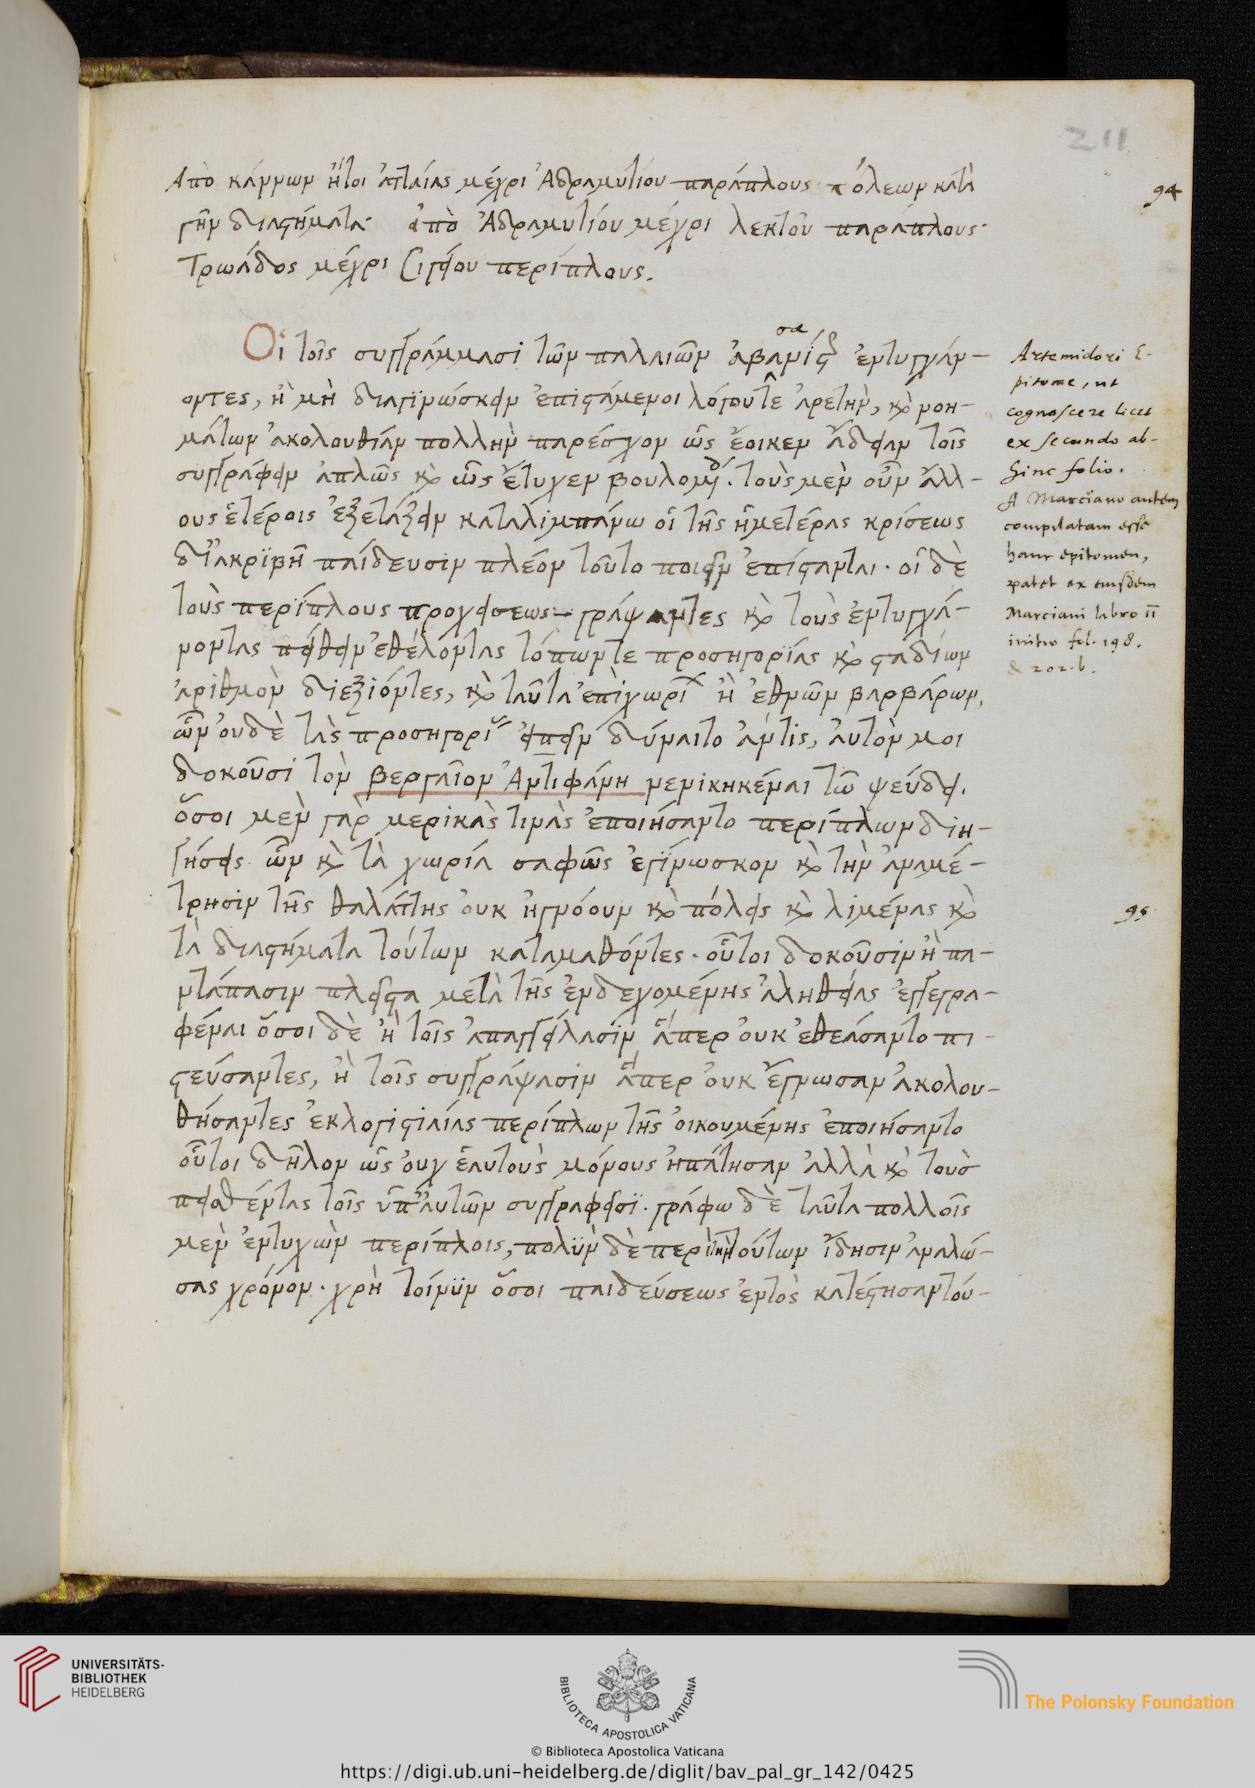 211
Ἀπὸ κάννων ἤτοι ἀτλαίας μέχρι Ἀδραμυτίου παράπλους πόλεων κατὰ
γῆν διαστήματα· ἀπὸ Ἀδραμυτίου μέχρι λεκτοῦ παράπλους·
Τρωάδος μέχρι Σιγείου περίπλους.
94
Οἱ τοῖς συγγράμμασι τῶν παλαιῶν ἐντυγχάν-
οντες, ἢ μὴ διαγϊνώσκειν ἐπιστάμενοι λόγουτε ἀρετὴν, καὶ νοη-
μάτων ἀκολουθίαν πολλὴν παρέσχον ὡς ἔοικεν ἄδειαν τοῖς
συγγράφειν ἁπλῶς καὶ ὡς ἔτυχεν βουλομένοις. τοὺς μὲν οὖν ἄλλ-
ους ἑτέροις ἐξετάζειν καταλιμπάνω οἳ τῆς ἡμετέρας κρίσεως
δι᾽ἀκρϊβῆ παίδευσιν πλέον τοῦτο ποιεῖν ἐπίστανται· οἱ δὲ
τοὺς περϊπλους προχείσεως γράψαντες καὶ τοὺς ἐντυγχά-
νοντας πείθειν ἐθέλοντας τόπωντε προσηγορϊας καὶ σταδίων
ἀριθμὸν διεξιόντες, καὶ ταῦτα ἐπὶ χωρίων ἢ ἐθνῶν βαρβάρων,
ὧν οὐδὲ τὰς προσηγορίας εἰπεῖν δύναιτο ἄντις, αὐτὸν μοι
δοκοῦσι τὸν βεργαῖον Ἀντιφάνη νενικηκέναι τῶ ψεύδει.
ὅσοι μεν γὰρ μερικὰς τιμὰς ἐποιήσαντο περίπλων διη-
γήσεις ὧν καὶ τὰ χωρία σαφῶς ἐγίνωσκον καὶ τὴν ἀναμέ-
τρησιν τῆς θαλάττης οὐκ ἠγνόουν καὶ πόλεις καὶ λιμένας καὶ
95
τὰ διαστήματα τούτων καταμαθόντες· οὗτοι δοκοῦσιν ἢ πα-
ντάπασιν πλεῖστα μετὰ τῆς ἐνδεχομένης ἀληθείας ἐγγεγρα-
φέναι ὅσοι δὲ ἢ τοῖς ἀπαγγείλασϊν ἅπερ οὐκ ἐθεάσαντο πι-
στεύσαντες, ἢ τοῖς συγγράψασιν ἅπερ οὐκ ἔγνωσαν ἀκολου-
θήσαντες ἐκλογιστιαίας περίπλων τῆς οἰκουμένης ἐποιήσαντο
οὗτοι δῆλον ὡς οὐχ ἑαυτοὺς μόνους ἠπάτησαν ἀλλὰ καὶ τοὺσ
πεισθέντας τοῖς ὑπ᾽αὐτῶν συγγραφεῖσϊ. γράφω δὲ ταῦτα πολλοῖς
μεν ἐντυχὼν περίπλοις, πολὺν δὲ περὶ τὴν τούτων εἴδησιν ἀναλώ-
σας χρόνον· χρὴ τοίνυν ὅσοι παιδεύσεως ἐντὸς κατέστησαν τού-
Artemidori E-
pitome, ut
cognoscere licet
ex secundo ab-
hinc folio.
A Marciano autem
compilatam esse
hanc epitomen,
patet ex eiusdem
Marciani libro ii
initio fol. 198.
& 202. b.
UNIVERSITÄTS-
BIBLIOTHEK
HEIDELBERG
BIBLIOTECA APOSTOLICA VATICANA
© Biblioteca Apostolica Vaticana
The Polonsky Foundation
https://digi.ub.uni-heidelberg.de/diglit/bav_pal_gr_142/0425